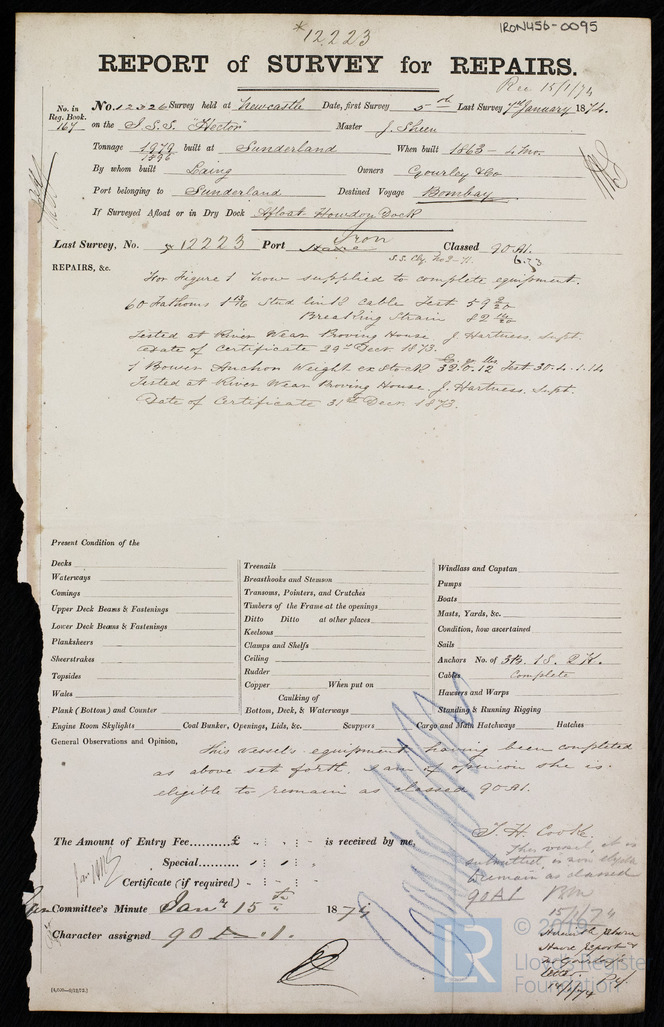 IRON456-0095
*12223
REPORT of SURVEY for REPAIRS.
Rec 15/1/74
No. in Reg. Book. 167
No. 12326 Survey held at Newcastle Date, first Survey 5th Last Survey 7th January 1874.
on the I.S.S. "Hector" Master J. Sheen
Tonnage 1979 built at Sunderland When built 1863 - 4 mo.
1896
By whom built Laing Owners Gourley & Co
Port belonging to Sunderland Destined Voyage Bombay
If Surveyed Afloat or in Dry Dock Afloat Howdon Dock
Last Survey, No. 12223 Port Iron Classed 90 A1.
6.73
REPAIRS, &c.
For Figure 1 now supplied to complete equipment.
60 Fathoms 1 13/16 Stud link cable Test 59 2/20
Breaking Strain 82
Tested at River Wear Proving House J. Hartness, Supt.
Date of Certificate 29th Decr 1873.
1 Bower Anchor Weight ex Stock 32.0.12 Test 30.4.1.14
Tested at River Wear Proving House. J. Hartness, Supt.
Date of Certificate 31st Decr 1873.
Present Condition of the
Decks
Waterways
Comings
Upper Deck Beams & Fastenings
Lower Deck Beams & Fastenings
Planksheers
Sheerstrakes
Topsides
Wales
Plank (Bottom) and Counter
Treenails
Breasthooks and Stemson
Transoms, Pointers, and Crutches
Timbers of the Frame at the openings
Ditto Ditto at other places
Keelsons
Clamps and Shelfs
Ceiling
Rudder
Copper When put on
Caulking of
Bottom, Deck, & Waterways
Windlass and Capstan
Pumps
Boats
Masts, Yards, &c.
Condition, how ascertained
Sails
Anchors No. of 3B. 1S. 2K.
Cables Complete
Hawsers and Warps
Standing & Running Rigging
Engine Room Skylights Coal Bunker, Openings, Lids, &c. Scuppers Cargo and Main Hatchways Hatches
General Observations and Opinion, This vessel's equipment having been completed
as above set forth. I am of opinion she is
eligible to remain as classed 90 A1.
The Amount of Entry Fee..........£ is received by me,
Special..........
Certificate (if required)
T. H. Cooke.
This vessel, it is
submitted is now eligible
to remain as classed
90A1
15/1/74
Committee's Minute Jany 15th 1874
Character assigned 90 A.1.
Herewith
letter
© 2019
LR
Lloyd's Register
Foundation